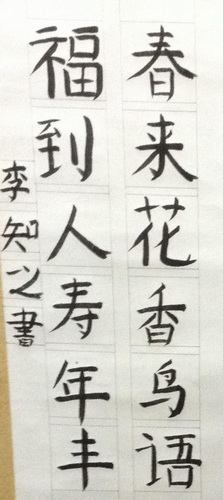 春来花香鸟语
福到人寿年丰
李知之書